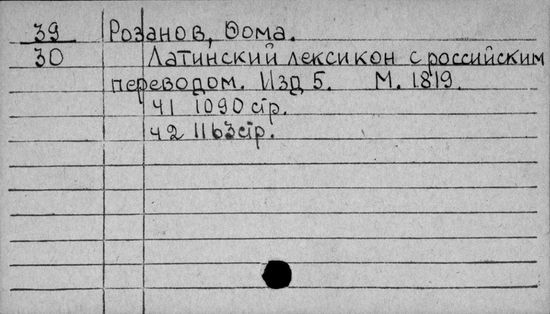 39 Розанов, Ѳома.
30 Латинский лексикон с российским
переводом. Изд 5. М. 1819.
ч1 1090 стр.
ч2 1163 стр.